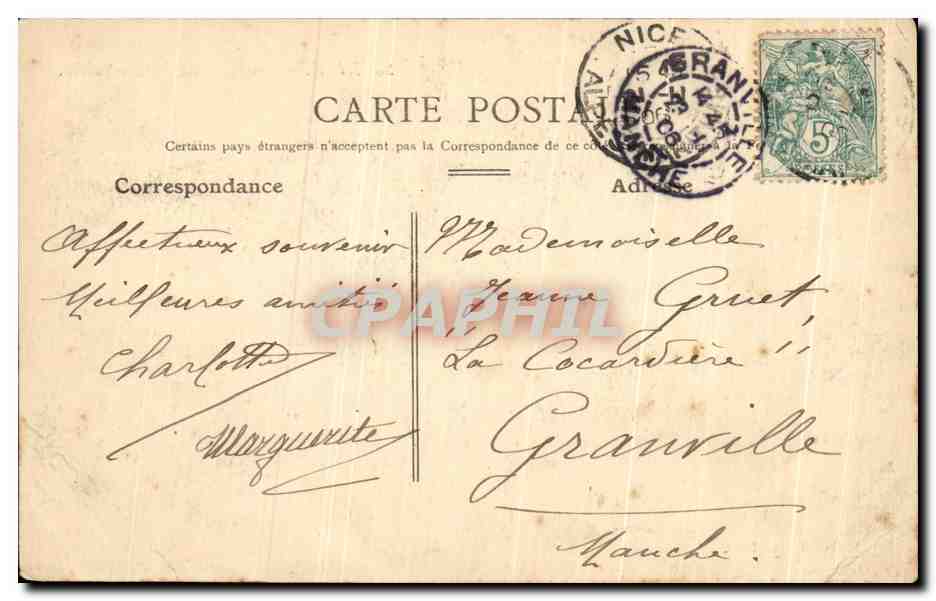 CARTE POSTALE
Certains pays étrangers n'acceptent pas la Correspondance de ce côté
Correspondance
Adresse
NICE
GRANVILLE
MANCHE
5
Affectueux souvenir
Meilleures amitiés
Charlotte
Marguerite
Mademoiselle
Jeanne Gruet
"La Cocardière"
Granville
Manche.
CPAPHIL